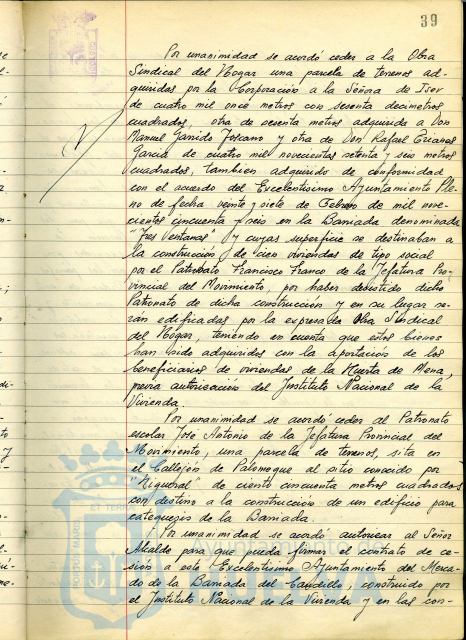 39
Por unanimidad se acordó ceder a la Obra
Sindical del Hogar una parcela de terrenos ad-
quiridas por la Corporación a la Señora de Isern
de cuatro mil once metros con sesenta decimetros
cuadrados, otra de sesenta metros adquirida a Don
Manuel Garrido Toscano y otra de Don Rafael
Garcia de cuatro mil novecientas setenta y seis metros
cuadrados, tambien adquirida de conformidad
con el acuerdo del Excelentisimo Ayuntamiento Ple-
no de fecha veinte y siete de Febrero de mil nove-
cientos cincuenta y seis en la Barriada denominada
"Tres Ventanas" y cuyas superficie se destinaban a
la construcción de cien viviendas de tipo social
por el Patronato Francisco Franco de la Jefatura Pro-
vincial del Movimiento, por haber desistido dicho
Patronato de dicha construcción y en su lugar se-
rán edificadas por la expresada Obra Sindical
del Hogar, teniendo en cuenta que estos bienes
han sido adquiridos con la aportación de los
beneficiarios de viviendas de la Huerta de Mena,
previa autorización del Instituto Nacional de la
Vivienda.
Por unanimidad se acordó ceder al Patronato
escolar Jose Antonio de la Jefatura Provincial del
Movimiento, una parcela de terrenos, sita en
el Callejón de Palomeque al sitio conocido por
"Higueral" de ciento cincuenta metros cuadrados
con destino a la construcción de un edificio para
catequesis de la Barriada.
Por unanimidad se acordó autorizar al Señor
Alcalde para que pueda firmar el contrato de ce-
sión a este Excelentisimo Ayuntamiento del Merca-
do de la Barriada del Caudillo, construido por
el Instituto Nacional de la Vivienda y en las con-